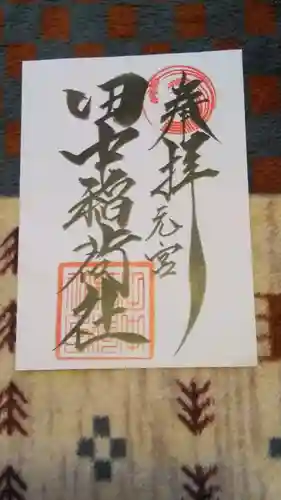 奉拝
元宮
田中稲荷社